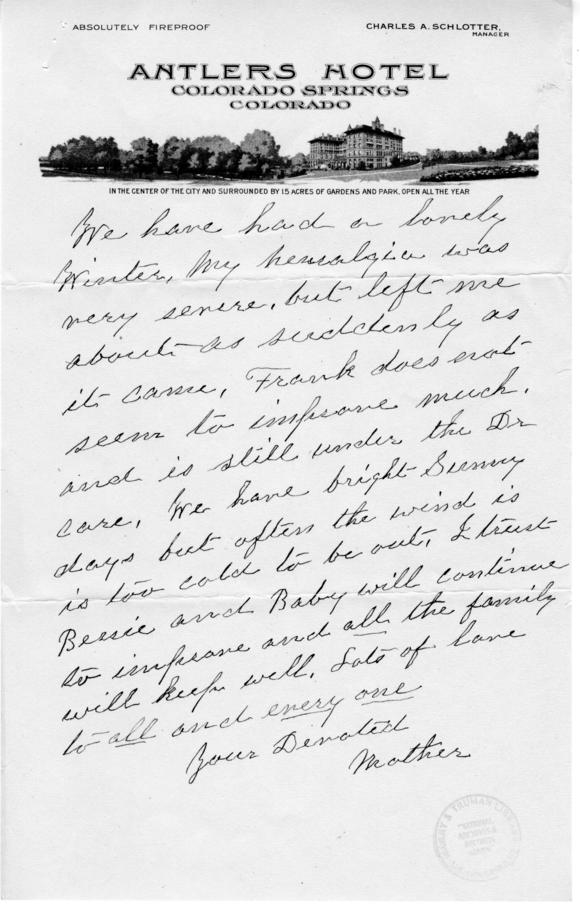 ABSOLUTELY FIREPROOF
CHARLES A. SCHLOTTER,
MANAGER
ANTLERS HOTEL
COLORADO SPRINGS
COLORADO
IN THE CENTER OF THE CITY AND SURROUNDED BY 15 ACRES OF GARDENS AND PARK. OPEN ALL THE YEAR
We have had a lovely
Winter, My neuralgia was
very severe, but left me
about as suddenly as
it came, Frank does not
seem to improve much,
and is still under the Dr
care, We have bright Sunny
days but often the wind is
is too cold to be out, I trust
Bessie and Baby will continue
to improve and all the family
will keep well, Lots of love
to all and every one
Your Devoted
Mother
HARRY S TRUMAN LIBRARY
NATIONAL
ARCHIVES &
RECORDS